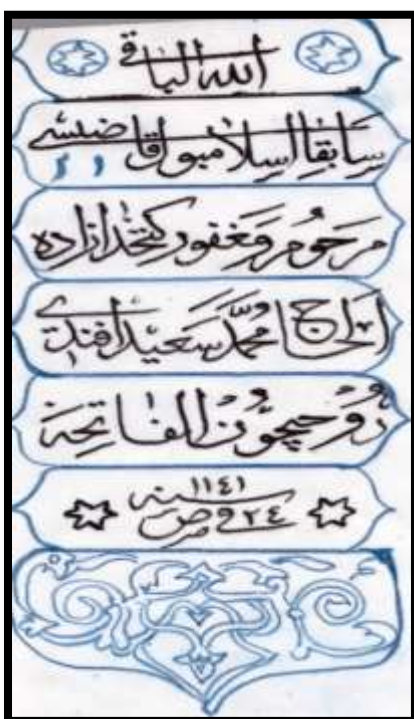 الله الباقي
سابقا اسلامبول قاضيسي
مرحوم و مغفور كتخدازاده
الحاج محمد سعيد افندي
روحيچون الفاتحه
سنه ١١٤١
في ٢٤ ص